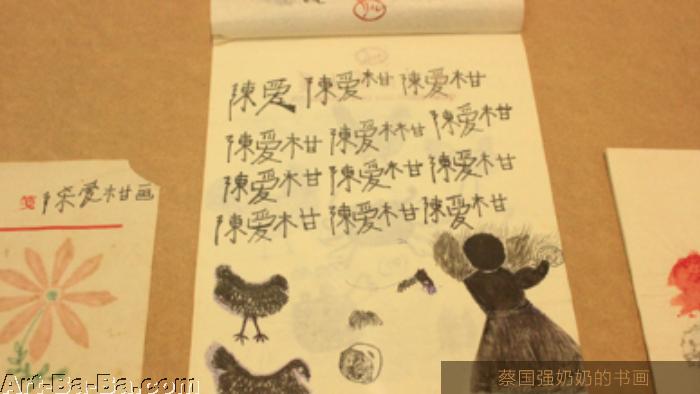 陳爱 陳爱柑 陳爱柑
陳爱柑 陳爱木柑 陳爱柑
陳爱柑 陳爱柑 陳爱柑
陳爱柑 陳爱柑 陳爱柑
笺 陈爱柑画
Art-Ba-Ba.com
蔡国强奶奶的书画